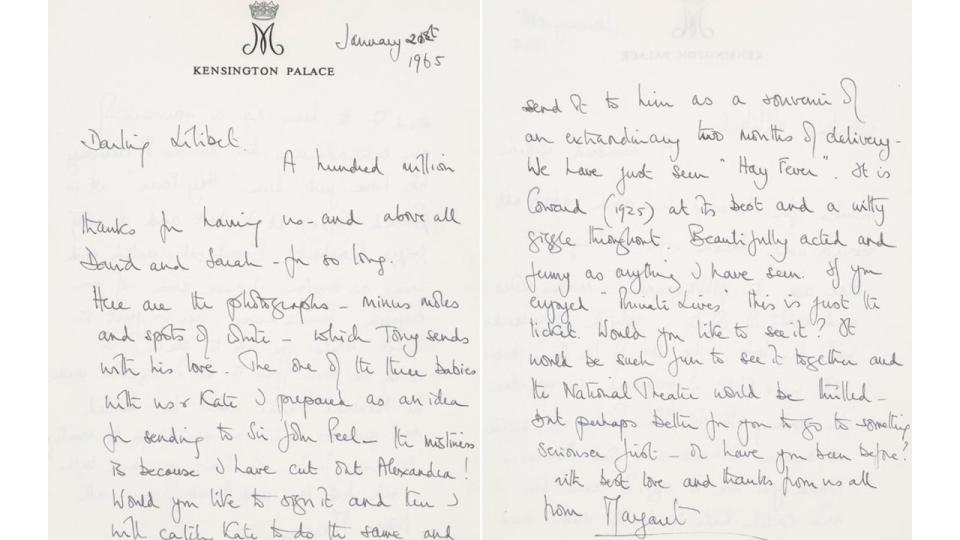 M
January 21st
1965
KENSINGTON PALACE
Darling Lilibet.
A hundred million
thanks for having us - and above all
David and Sarah - for so long.
Here are the photographs - minus moles
and spots of white - which Tony sends
with his love. The one of the three babies
with us & Kate I prepared as an idea
for sending to Sir John Peel - the mistiness
is because I have cut out Alexandra!
Would you like to sign it and then I
will catch Kate to do the same and
send it to him as a souvenir of
an extraordinary two months of delivery -
We have just seen "Hay Fever". It is
Coward (1925) at its best and a witty
giggle throughout. Beautifully acted and
funny as anything I have seen. If you
enjoyed "Private Lives" this is just the
ticket. Would you like to see it? It
would be such fun to see it together and
the National Theatre would be thrilled -
but perhaps better for you to go to something
seriouser first - or have you been before?
with best love and thanks from us all
from Margaret